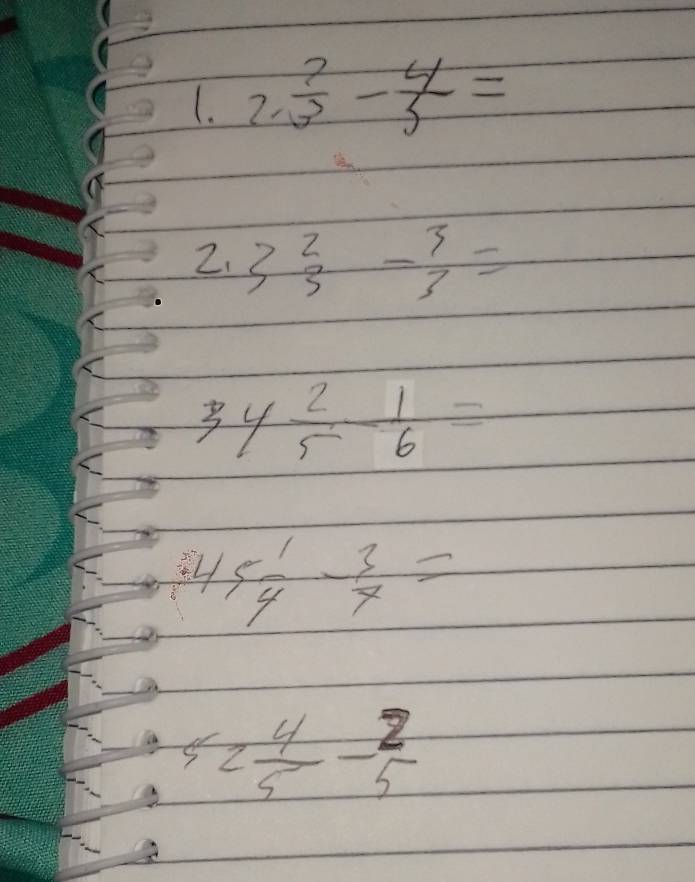 1. 2 2/3 - 4/5 =
2. 3 2/3 - 3/3 =
3 4 2/5 - 1/6 =
4 5 1/4 - 3/7 =
5 2 4/5 - 2/5